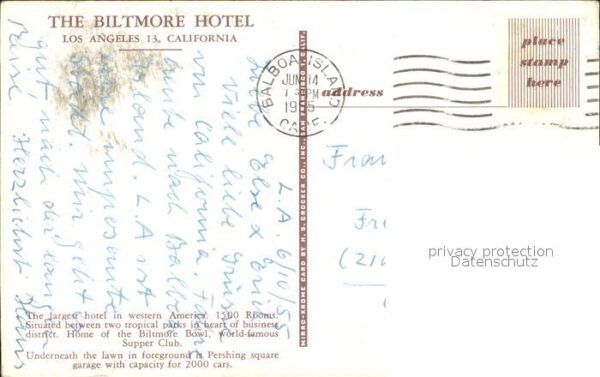 THE BILTMORE HOTEL
LOS ANGELES 13, CALIFORNIA
place
stamp
here
BALBOA ISLAND
JUN 14
PM
1955
CALIF.
address
L. A. 6/10/55
Liebe Else &
Viele liebe Grüsse
von California. Fahre
heute nach Balboa
Island. L.A ist
eine imposante
Stadt. Mir geht es
gut nach der langen
Reise Herzlichst Hanns
Fran
Fr
(21
MIRRO-KROME CARD BY H. S. CROCKER CO., INC., SAN FRANCISCO 1, CALIF.
privacy protection
Datenschutz
The largest hotel in western America. 1500 Rooms.
Situated between two tropical parks in heart of business
district. Home of the Biltmore Bowl, world-famous
Supper Club.
Underneath the lawn in foreground is Pershing square
garage with capacity for 2000 cars.